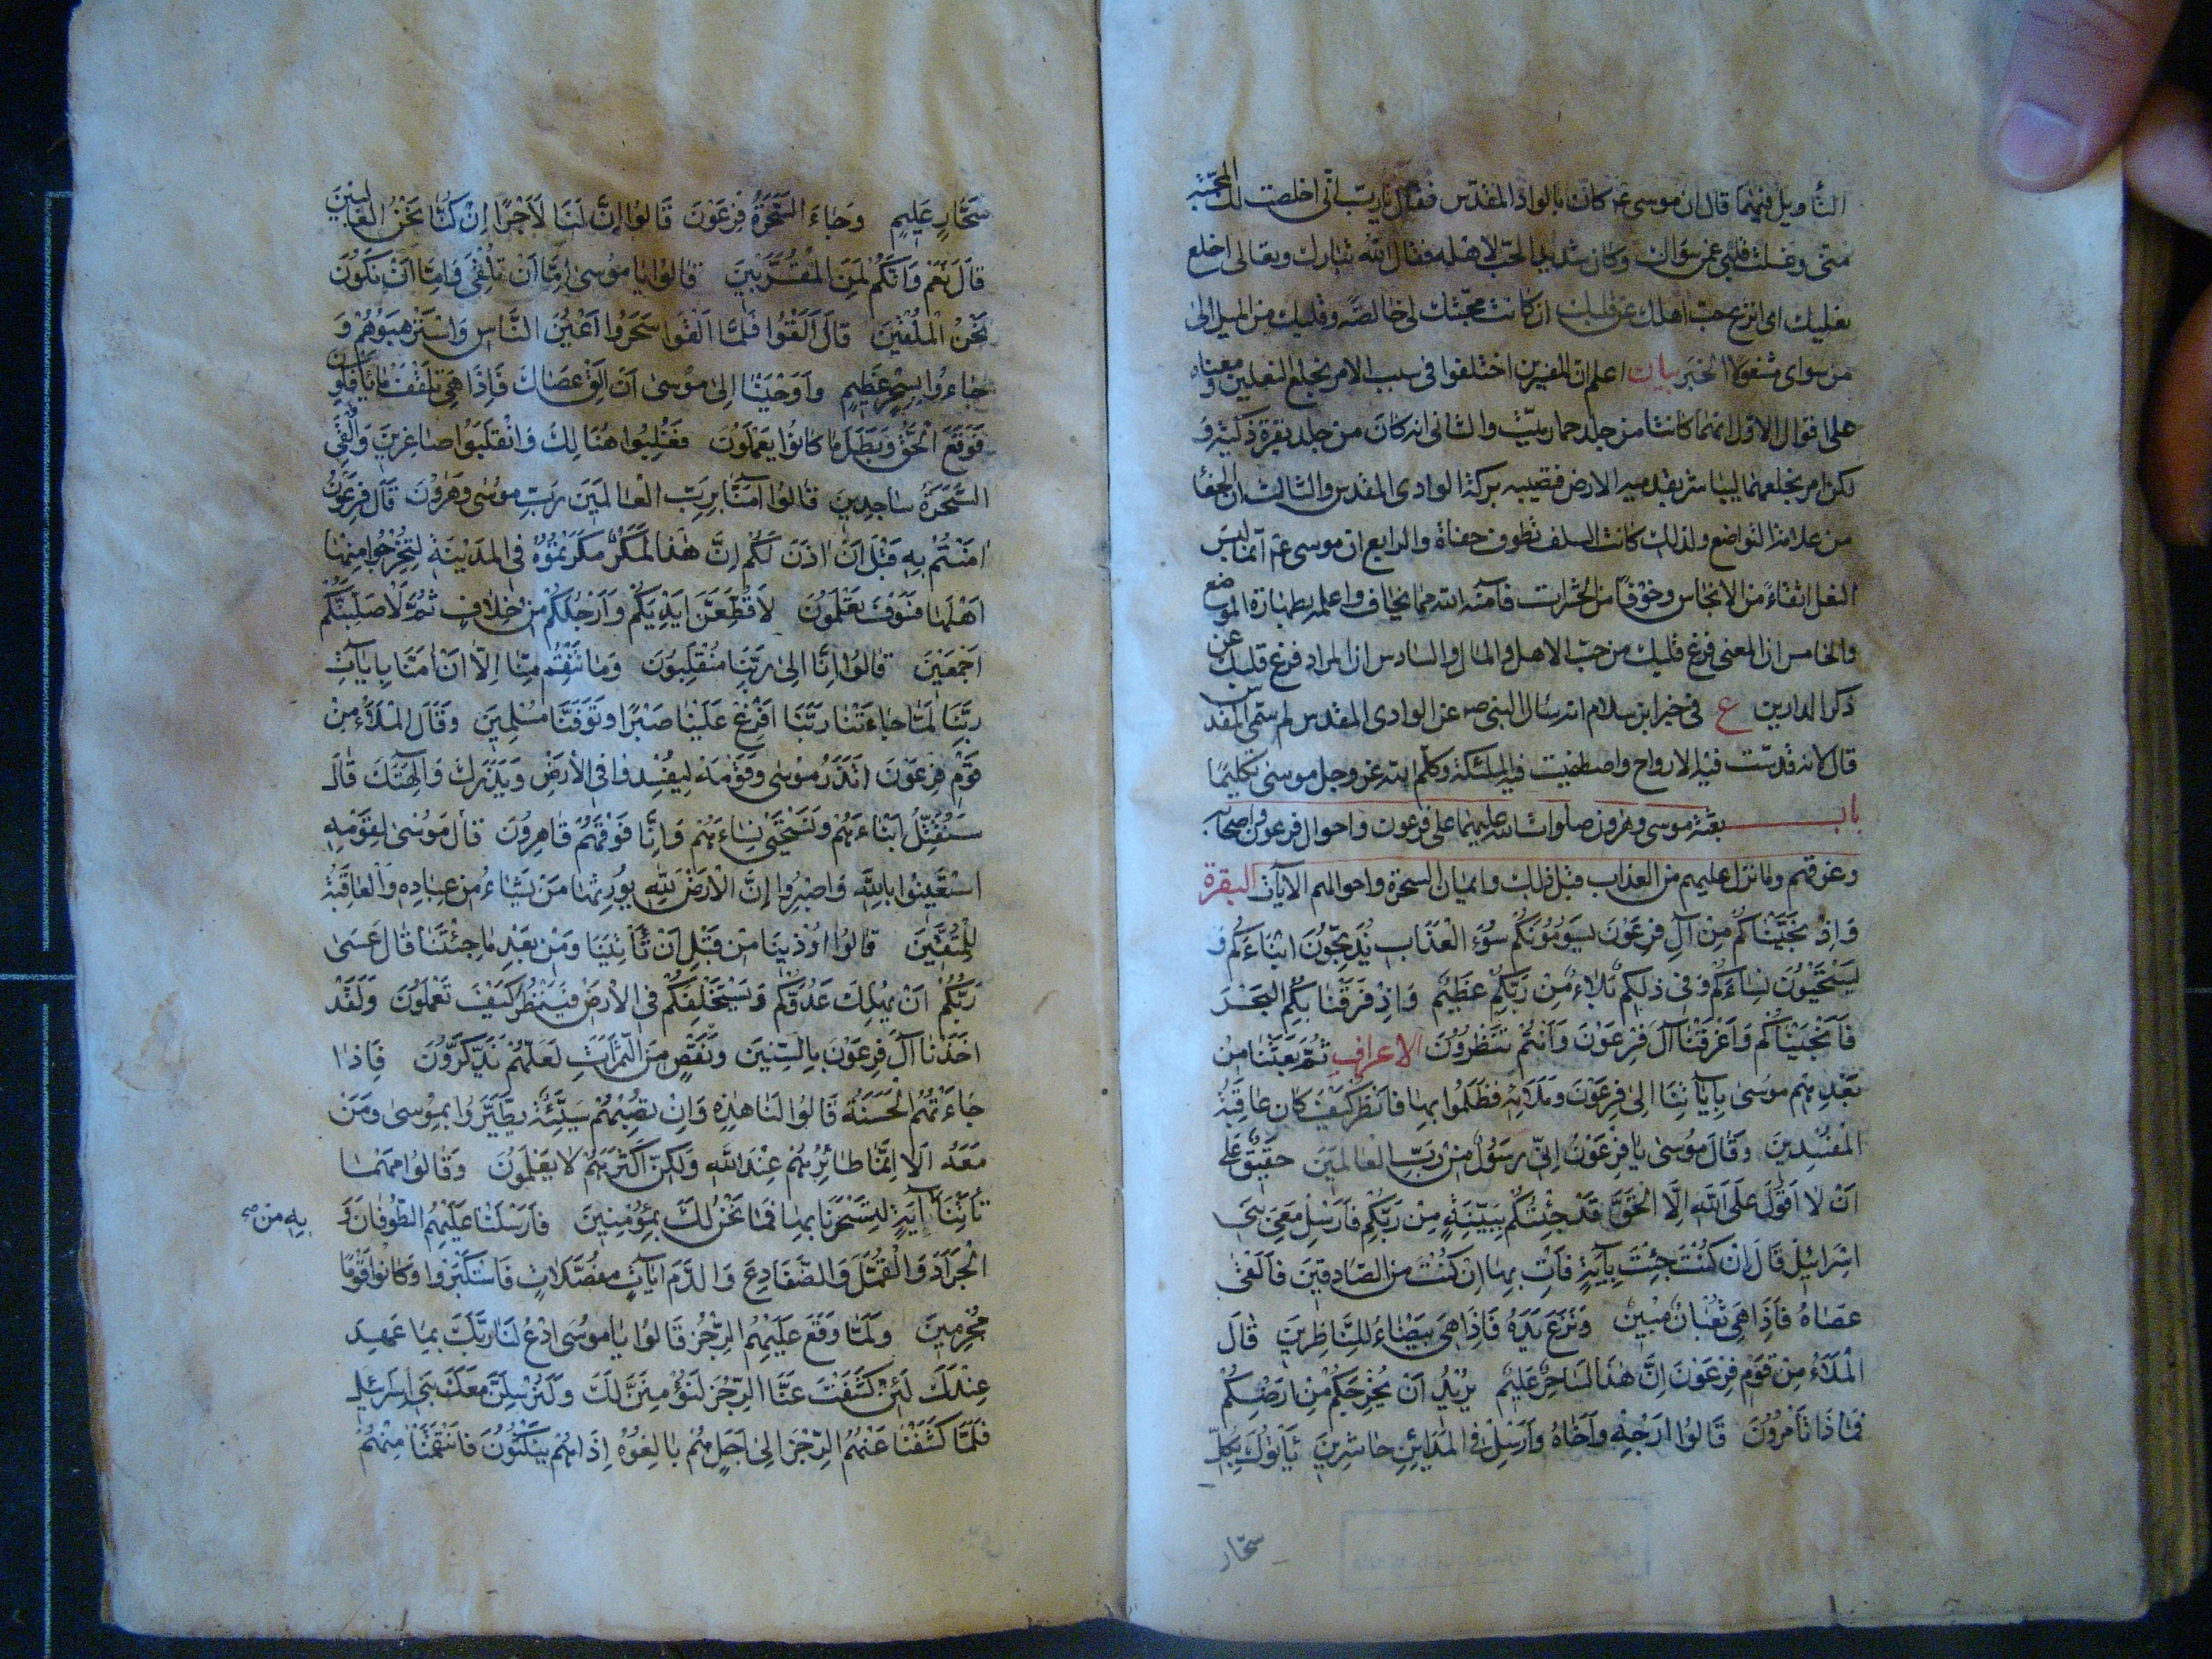 التأويل فيهما قال ان موسى ع كان بالواد المقدس فقال يا رب انى اخلصت لك المحبة
منى وغسلت قلبى عمن سواك وكان شديد الحب لاهله فقال الله تبارك وتعالى اخلع
نعليك اى انزع حب اهلك عن قلبك ان كانت محبتك لى خالصة وقلبك من الميل الى
من سواى مشغولا الخبر بيان اعلم ان المفسرين اختلفوا فى سبب الامر بخلع النعلين ومعناه
على اقوال الاول انهما كانتا من جلد حمار ميت والثانى انه كان من جلد بقرة ذكية و
لكن امر بخلعهما ليباشر بقدميه الارض فتصيبه بركة الوادى المقدس والثالث ان الحفا
من علامة التواضع ولذلك كانت السلف تطوف حفاة والرابع ان موسى ع انما لبس
النعل اتقاء من الانجاس وخوفا من الحشرات فآمنه الله مما يخاف واعلمه بطهارة الموضع
والخامس ان المعنى فرغ قلبك من حب الاهل والمال والسادس ان المراد فرغ قلبك عن
ذكر الدارين ع فى خبر ابن سلام انه سال النبى ص عن الوادى المقدس لم سمى المقدس
قال لانه قدست فيه الارواح واصطفيت فيه الملئكة وكلم الله عز وجل موسى تكليما
باب بعثة موسى وهرون صلوات الله عليهما على فرعون واحوال فرعون واصحابه
وغرقهم وما نزل عليهم من العذاب قبل ذلك وايمان السحرة واحوالهم الايات البقرة
وَاِذْ نَجَّيْنَاكُمْ مِنْ آلِ فِرْعَوْنَ يَسُومُونَكُمْ سُوءَ الْعَذَابِ يُذَبِّحُونَ اَبْنَاءَكُمْ وَ
يَسْتَحْيُونَ نِسَاءَكُمْ وَفى ذلِكُمْ بَلَاءٌ مِنْ رَبِّكُمْ عَظِيمٌ وَاِذْ فَرَقْنَا بِكُمُ الْبَحْرَ
فَاَنْجَيْنَاكُمْ وَاَغْرَقْنَا آلَ فِرْعَوْنَ وَاَنْتُمْ تَنْظُرُونَ الاعراف ثُمَّ بَعَثْنَا مِنْ
بَعْدِهِمْ مُوسى بِآيَاتِنَا اِلى فِرْعَوْنَ وَمَلَائِهِ فَظَلَمُوا بِهَا فَانْظُرْ كَيْفَ كَانَ عَاقِبَةُ
الْمُفْسِدِينَ وَقَالَ مُوسى يَا فِرْعَوْنُ اِنِّى رَسُولٌ مِنْ رَبِّ الْعَالَمِينَ حَقِيقٌ عَلى
اَنْ لَا اَقُولَ عَلَى اللهِ اِلَّا الْحَقَّ قَدْ جِئْتُكُمْ بِبَيِّنَةٍ مِنْ رَبِّكُمْ فَاَرْسِلْ مَعِىَ بَنى
اِسْرَائِيلَ قَالَ اِنْ كُنْتَ جِئْتَ بِآيَةٍ فَاْتِ بِهَا اِنْ كُنْتَ مِنَ الصَّادِقِينَ فَاَلْقى
عَصَاهُ فَاِذَا هِىَ ثُعْبَانٌ مُبِينٌ وَنَزَعَ يَدَهُ فَاِذَا هِىَ بَيْضَاءُ لِلنَّاظِرِينَ قَالَ
الْمَلَاُ مِنْ قَوْمِ فِرْعَوْنَ اِنَّ هذَا لَسَاحِرٌ عَلِيمٌ يُرِيدُ اَنْ يُخْرِجَكُمْ مِنْ اَرْضِكُمْ
فَمَاذَا تَاْمُرُونَ قَالُوا اَرْجِهْ وَاَخَاهُ وَاَرْسِلْ فِى الْمَدَائِنِ حَاشِرِينَ يَاْتُوكَ بِكُلِّ
سحّار
سَحَّارٍ عَلِيمٍ وَجَاءَ السَّحَرَةُ فِرْعَوْنَ قَالُوا اِنَّ لَنَا لَاَجْرًا اِنْ كُنَّا نَحْنُ الْغَالِبِينَ
قَالَ نَعَمْ وَاِنَّكُمْ لَمِنَ الْمُقَرَّبِينَ قَالُوا يَا مُوسى اِمَّا اَنْ تُلْقِىَ وَاِمَّا اَنْ نَكُونَ
نَحْنُ الْمُلْقِينَ قَالَ اَلْقُوا فَلَمَّا اَلْقَوْا سَحَرُوا اَعْيُنَ النَّاسِ وَاسْتَرْهَبُوهُمْ وَ
جَاءُوا بِسِحْرٍ عَظِيمٍ وَاَوْحَيْنَا اِلى مُوسى اَنْ اَلْقِ عَصَاكَ فَاِذَا هِىَ تَلْقَفُ مَا يَاْفِكُونَ
فَوَقَعَ الْحَقُّ وَبَطَلَ مَا كَانُوا يَعْمَلُونَ فَغُلِبُوا هُنَالِكَ وَانْقَلَبُوا صَاغِرِينَ وَاُلْقِىَ
السَّحَرَةُ سَاجِدِينَ قَالُوا آمَنَّا بِرَبِّ الْعَالَمِينَ رَبِّ مُوسى وَهرُونَ قَالَ فِرْعَوْنُ
امَنْتُمْ بِهِ قَبْلَ اَنْ اذَنَ لَكُمْ اِنَّ هذَا لَمَكْرٌ مَكَرْتُمُوهُ فِى الْمَدِينَةِ لِتُخْرِجُوا مِنْهَا
اَهْلَهَا فَسَوْفَ تَعْلَمُونَ لَاُقَطِّعَنَّ اَيْدِيَكُمْ وَاَرْجُلَكُمْ مِنْ خِلَافٍ ثُمَّ لَاُصَلِّبَنَّكُمْ
اَجْمَعِينَ قَالُوا اِنَّا اِلى رَبِّنَا مُنْقَلِبُونَ وَمَا تَنْقِمُ مِنَّا اِلَّا اَنْ آمَنَّا بِايَاتِ
رَبِّنَا لَمَّا جَاءَتْنَا رَبَّنَا اَفْرِغْ عَلَيْنَا صَبْرًا وَتَوَفَّنَا مُسْلِمِينَ وَقَالَ الْمَلَاُ مِنْ
قَوْمِ فِرْعَوْنَ اَتَذَرُ مُوسى وَقَوْمَهُ لِيُفْسِدُوا فِى الْاَرْضِ وَيَذَرَكَ وَآلِهَتَكَ قَالَ
سَنُقَتِّلُ اَبْنَاءَهُمْ وَنَسْتَحْيِى نِسَاءَهُمْ وَاِنَّا فَوْقَهُمْ قَاهِرُونَ قَالَ مُوسى لِقَوْمِهِ
اسْتَعِينُوا بِاللهِ وَاصْبِرُوا اِنَّ الْاَرْضَ لِلّهِ يُورِثُهَا مَنْ يَشَاءُ مِنْ عِبَادِهِ وَالْعَاقِبَةُ
لِلْمُتَّقِينَ قَالُوا اُوذِينَا مِنْ قَبْلِ اَنْ تَاْتِيَنَا وَمِنْ بَعْدِ مَا جِئْتَنَا قَالَ عَسى
رَبُّكُمْ اَنْ يُهْلِكَ عَدُوَّكُمْ وَيَسْتَخْلِفَكُمْ فِى الْاَرْضِ فَيَنْظُرَ كَيْفَ تَعْمَلُونَ وَلَقَدْ
اَخَذْنَا آلَ فِرْعَوْنَ بِالسِّنِينَ وَنَقْصٍ مِنَ الثَّمَرَاتِ لَعَلَّهُمْ يَذَّكَّرُونَ فَاِذَا
جَاءَتْهُمُ الْحَسَنَةُ قَالُوا لَنَا هذِهِ وَاِنْ تُصِبْهُمْ سَيِّئَةٌ يَطَّيَّرُوا بِمُوسى وَمَنْ
مَعَهُ اَلَا اِنَّمَا طَائِرُهُمْ عِنْدَ اللهِ وَلكِنَّ اَكْثَرَهُمْ لَا يَعْلَمُونَ وَقَالُوا مَهْمَا
تَاْتِنَا آيَةٍ لِتَسْحَرَنَا بِهَا فَمَا نَحْنُ لَكَ بِمُؤْمِنِينَ فَاَرْسَلْنَا عَلَيْهِمُ الطُّوفَانَ وَ
بِهِ مِنْ صح
الْجَرَادَ وَالْقُمَّلَ وَالضَّفَادِعَ وَالدَّمَ آيَاتٍ مُفَصَّلَاتٍ فَاسْتَكْبَرُوا وَكَانُوا قَوْمًا
مُجْرِمِينَ وَلَمَّا وَقَعَ عَلَيْهِمُ الرِّجْزُ قَالُوا يَا مُوسَى ادْعُ لَنَا رَبَّكَ بِمَا عَهِدَ
عِنْدَكَ لَئِنْ كَشَفْتَ عَنَّا الرِّجْزَ لَنُؤْمِنَنَّ لَكَ وَلَنُرْسِلَنَّ مَعَكَ بَنى اِسْرَائِيلَ
فَلَمَّا كَشَفْنَا عَنْهُمُ الرِّجْزَ اِلى اَجَلٍ هُمْ بَالِغُوهُ اِذَا هُمْ يَنْكُثُونَ فَانْتَقَمْنَا مِنْهُمْ